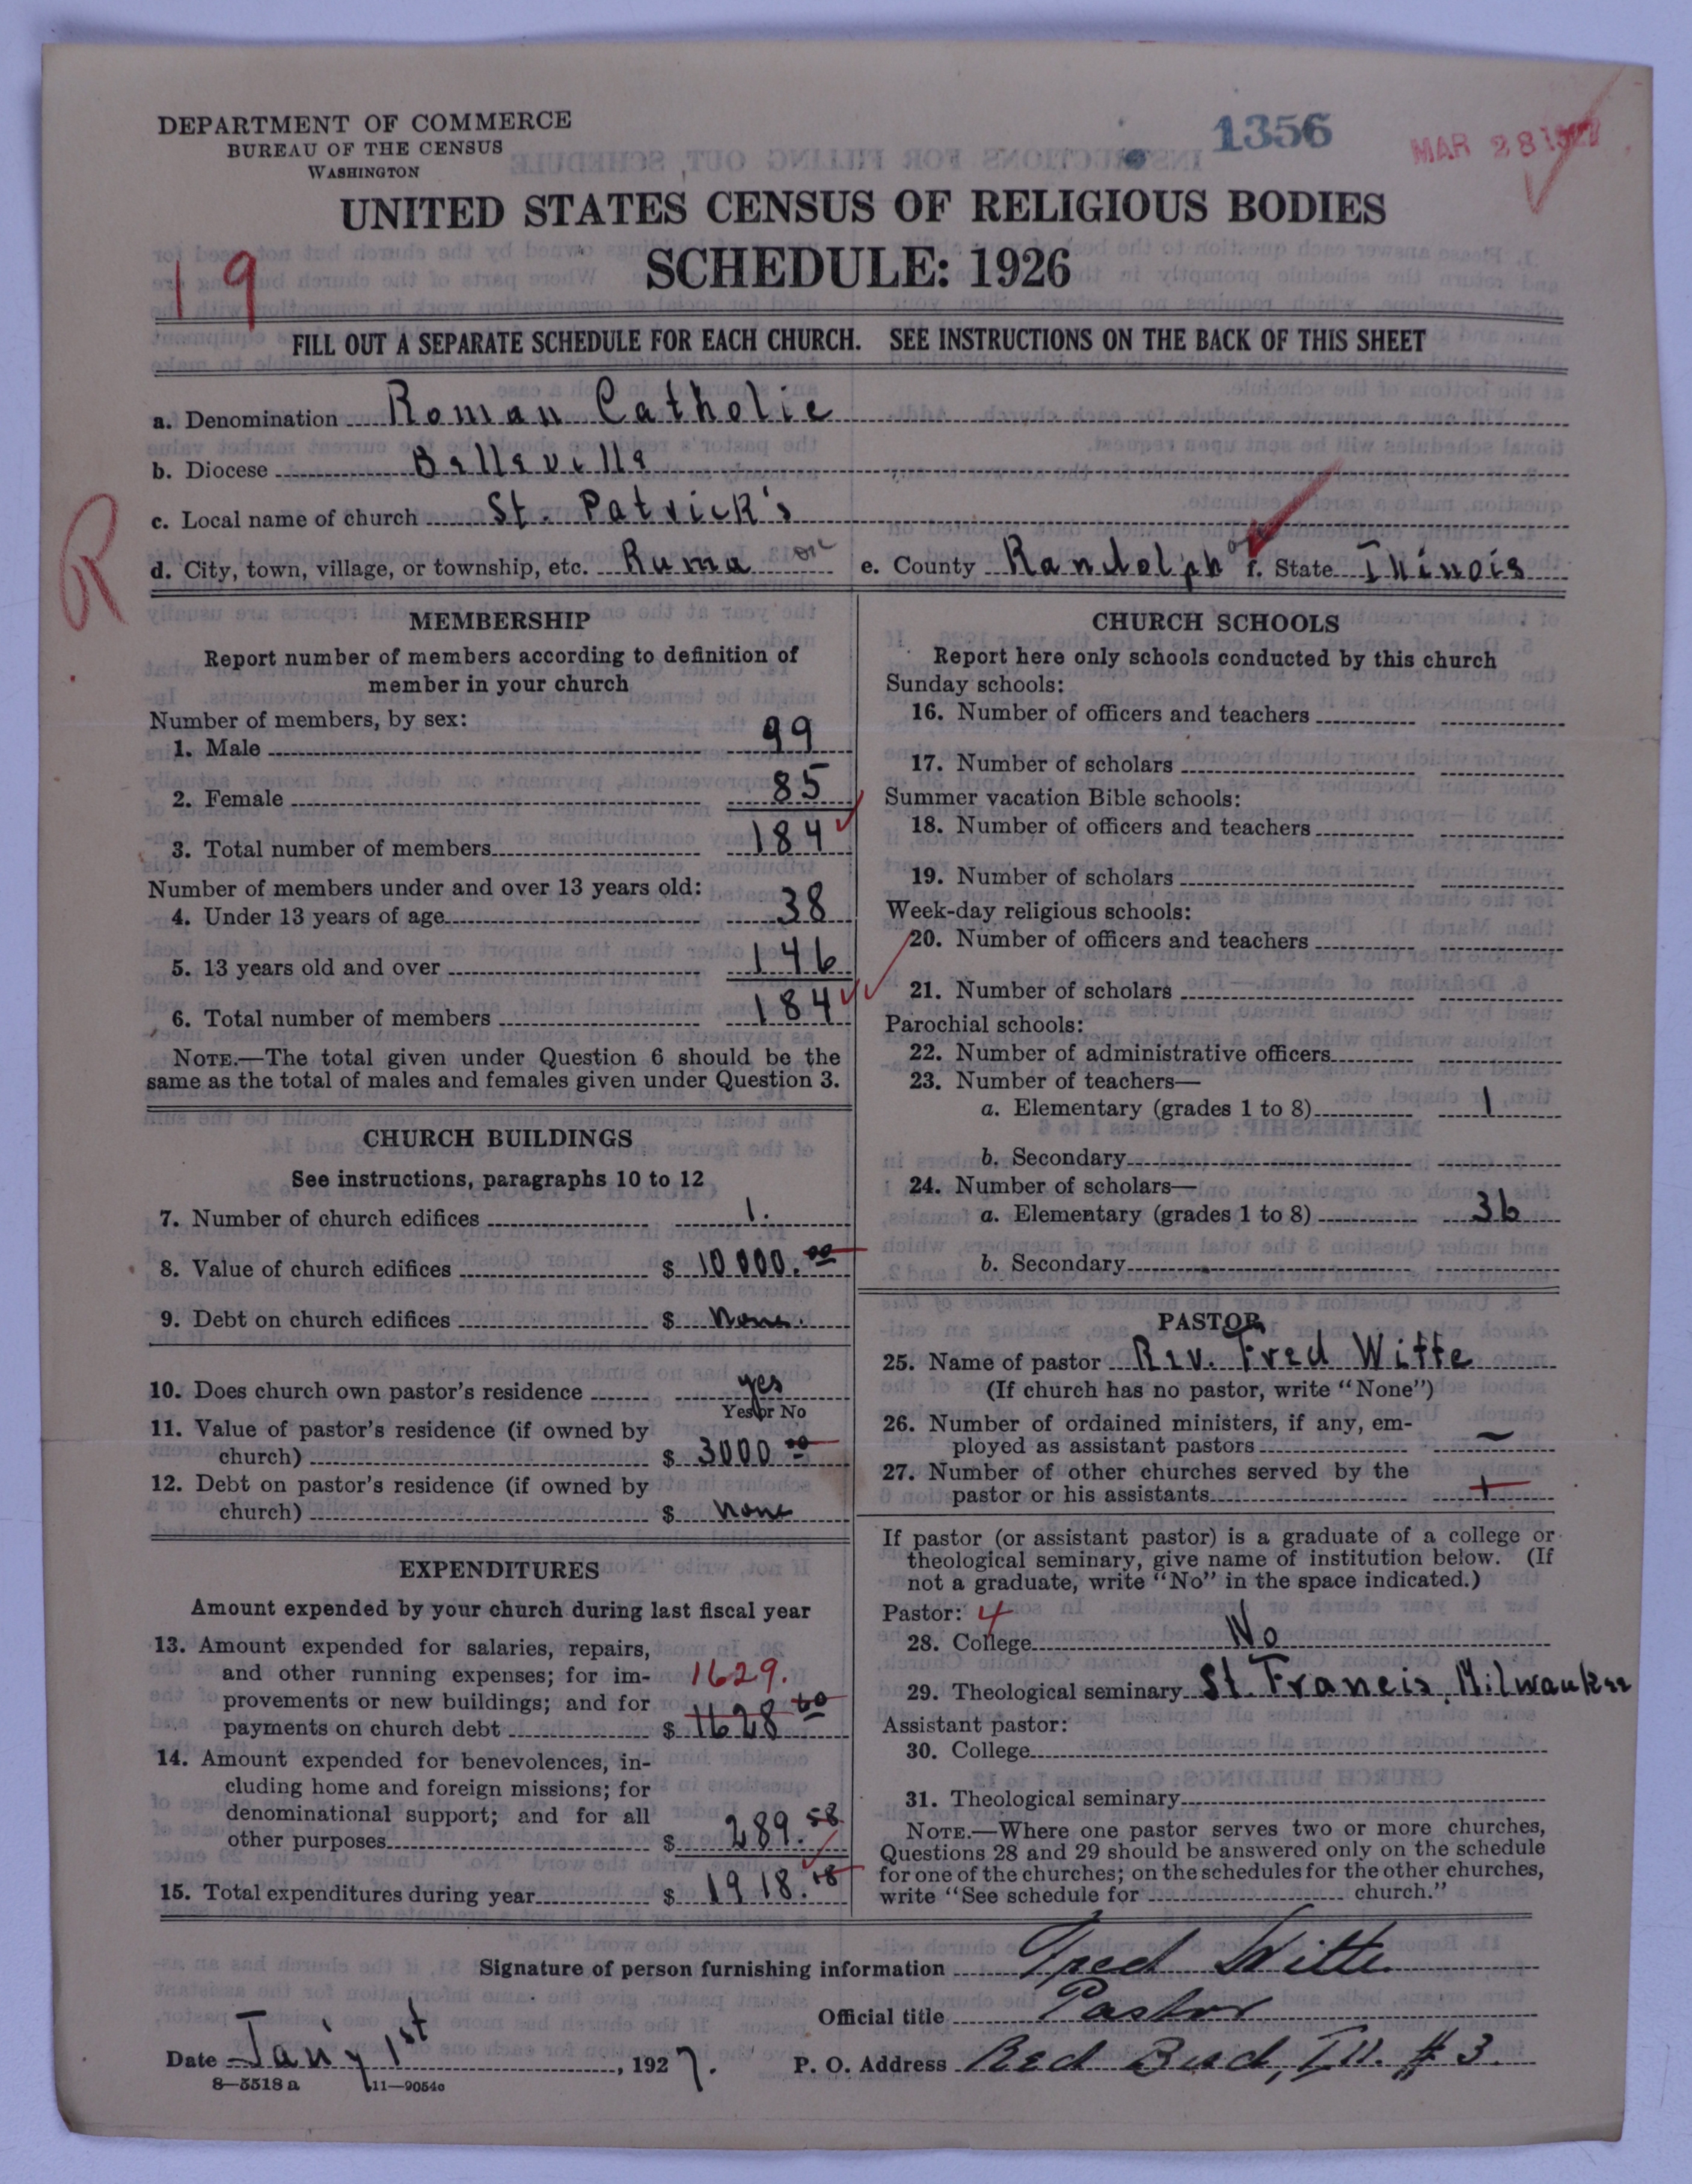 DEPARTMENT OF COMMERCE
BUREAU OF THE CENSUS
WASHINGTON
1356
MAR 28 1927
UNITED STATES CENSUS OF RELIGIOUS BODIES
SCHEDULE: 1926
19
FILL OUT A SEPARATE SCHEDULE FOR EACH CHURCH. SEE INSTRUCTIONS ON THE BACK OF THIS SHEET
a. Denomination Roman Catholic
b. Diocese Belleville
c. Local name of church St. Patrick's
R
d. City, town, village, or township, etc. Ruma e. County Randolph f. State Illinois
MEMBERSHIP
Report number of members according to definition of
member in your church
Number of members, by sex:
1. Male 99
2. Female 85
3. Total number of members 184
Number of members under and over 13 years old:
4. Under 13 years of age 38
5. 13 years old and over 146
6. Total number of members 184
NOTE.—The total given under Question 6 should be the
same as the total of males and females given under Question 3.
CHURCH BUILDINGS
See instructions, paragraphs 10 to 12
7. Number of church edifices 1.
8. Value of church edifices $ 10 000.00
9. Debt on church edifices $ None.
10. Does church own pastor's residence yes
Yes or No
11. Value of pastor's residence (if owned by
church) $ 3000 00
12. Debt on pastor's residence (if owned by
church) $ None
EXPENDITURES
Amount expended by your church during last fiscal year
13. Amount expended for salaries, repairs,
and other running expenses; for im- 1629.
provements or new buildings; and for
payments on church debt $ 1628 60
14. Amount expended for benevolences, in-
cluding home and foreign missions; for
denominational support; and for all
other purposes $ 289.58
15. Total expenditures during year $ 1918.18
CHURCH SCHOOLS
Report here only schools conducted by this church
Sunday schools:
16. Number of officers and teachers
17. Number of scholars
Summer vacation Bible schools:
18. Number of officers and teachers
19. Number of scholars
Week-day religious schools:
20. Number of officers and teachers
21. Number of scholars
Parochial schools:
22. Number of administrative officers
23. Number of teachers—
a. Elementary (grades 1 to 8) 1
b. Secondary
24. Number of scholars—
a. Elementary (grades 1 to 8) 36
b. Secondary
PASTOR
25. Name of pastor Rev. Fred Witte
(If church has no pastor, write "None")
26. Number of ordained ministers, if any, em-
ployed as assistant pastors –
27. Number of other churches served by the
pastor or his assistants
If pastor (or assistant pastor) is a graduate of a college or
theological seminary, give name of institution below. (If
not a graduate, write "No" in the space indicated.)
Pastor: 4
28. College No
29. Theological seminary St. Francis, Milwaukee
Assistant pastor:
30. College
31. Theological seminary
NOTE.—Where one pastor serves two or more churches,
Questions 28 and 29 should be answered only on the schedule
for one of the churches; on the schedules for the other churches,
write "See schedule for church."
Signature of person furnishing information Fred Witte
Official title Pastor
Date Jan'y 1st, 1927. P. O. Address Red Bud, Ill. # 3.
8—5518 a 11—9054c